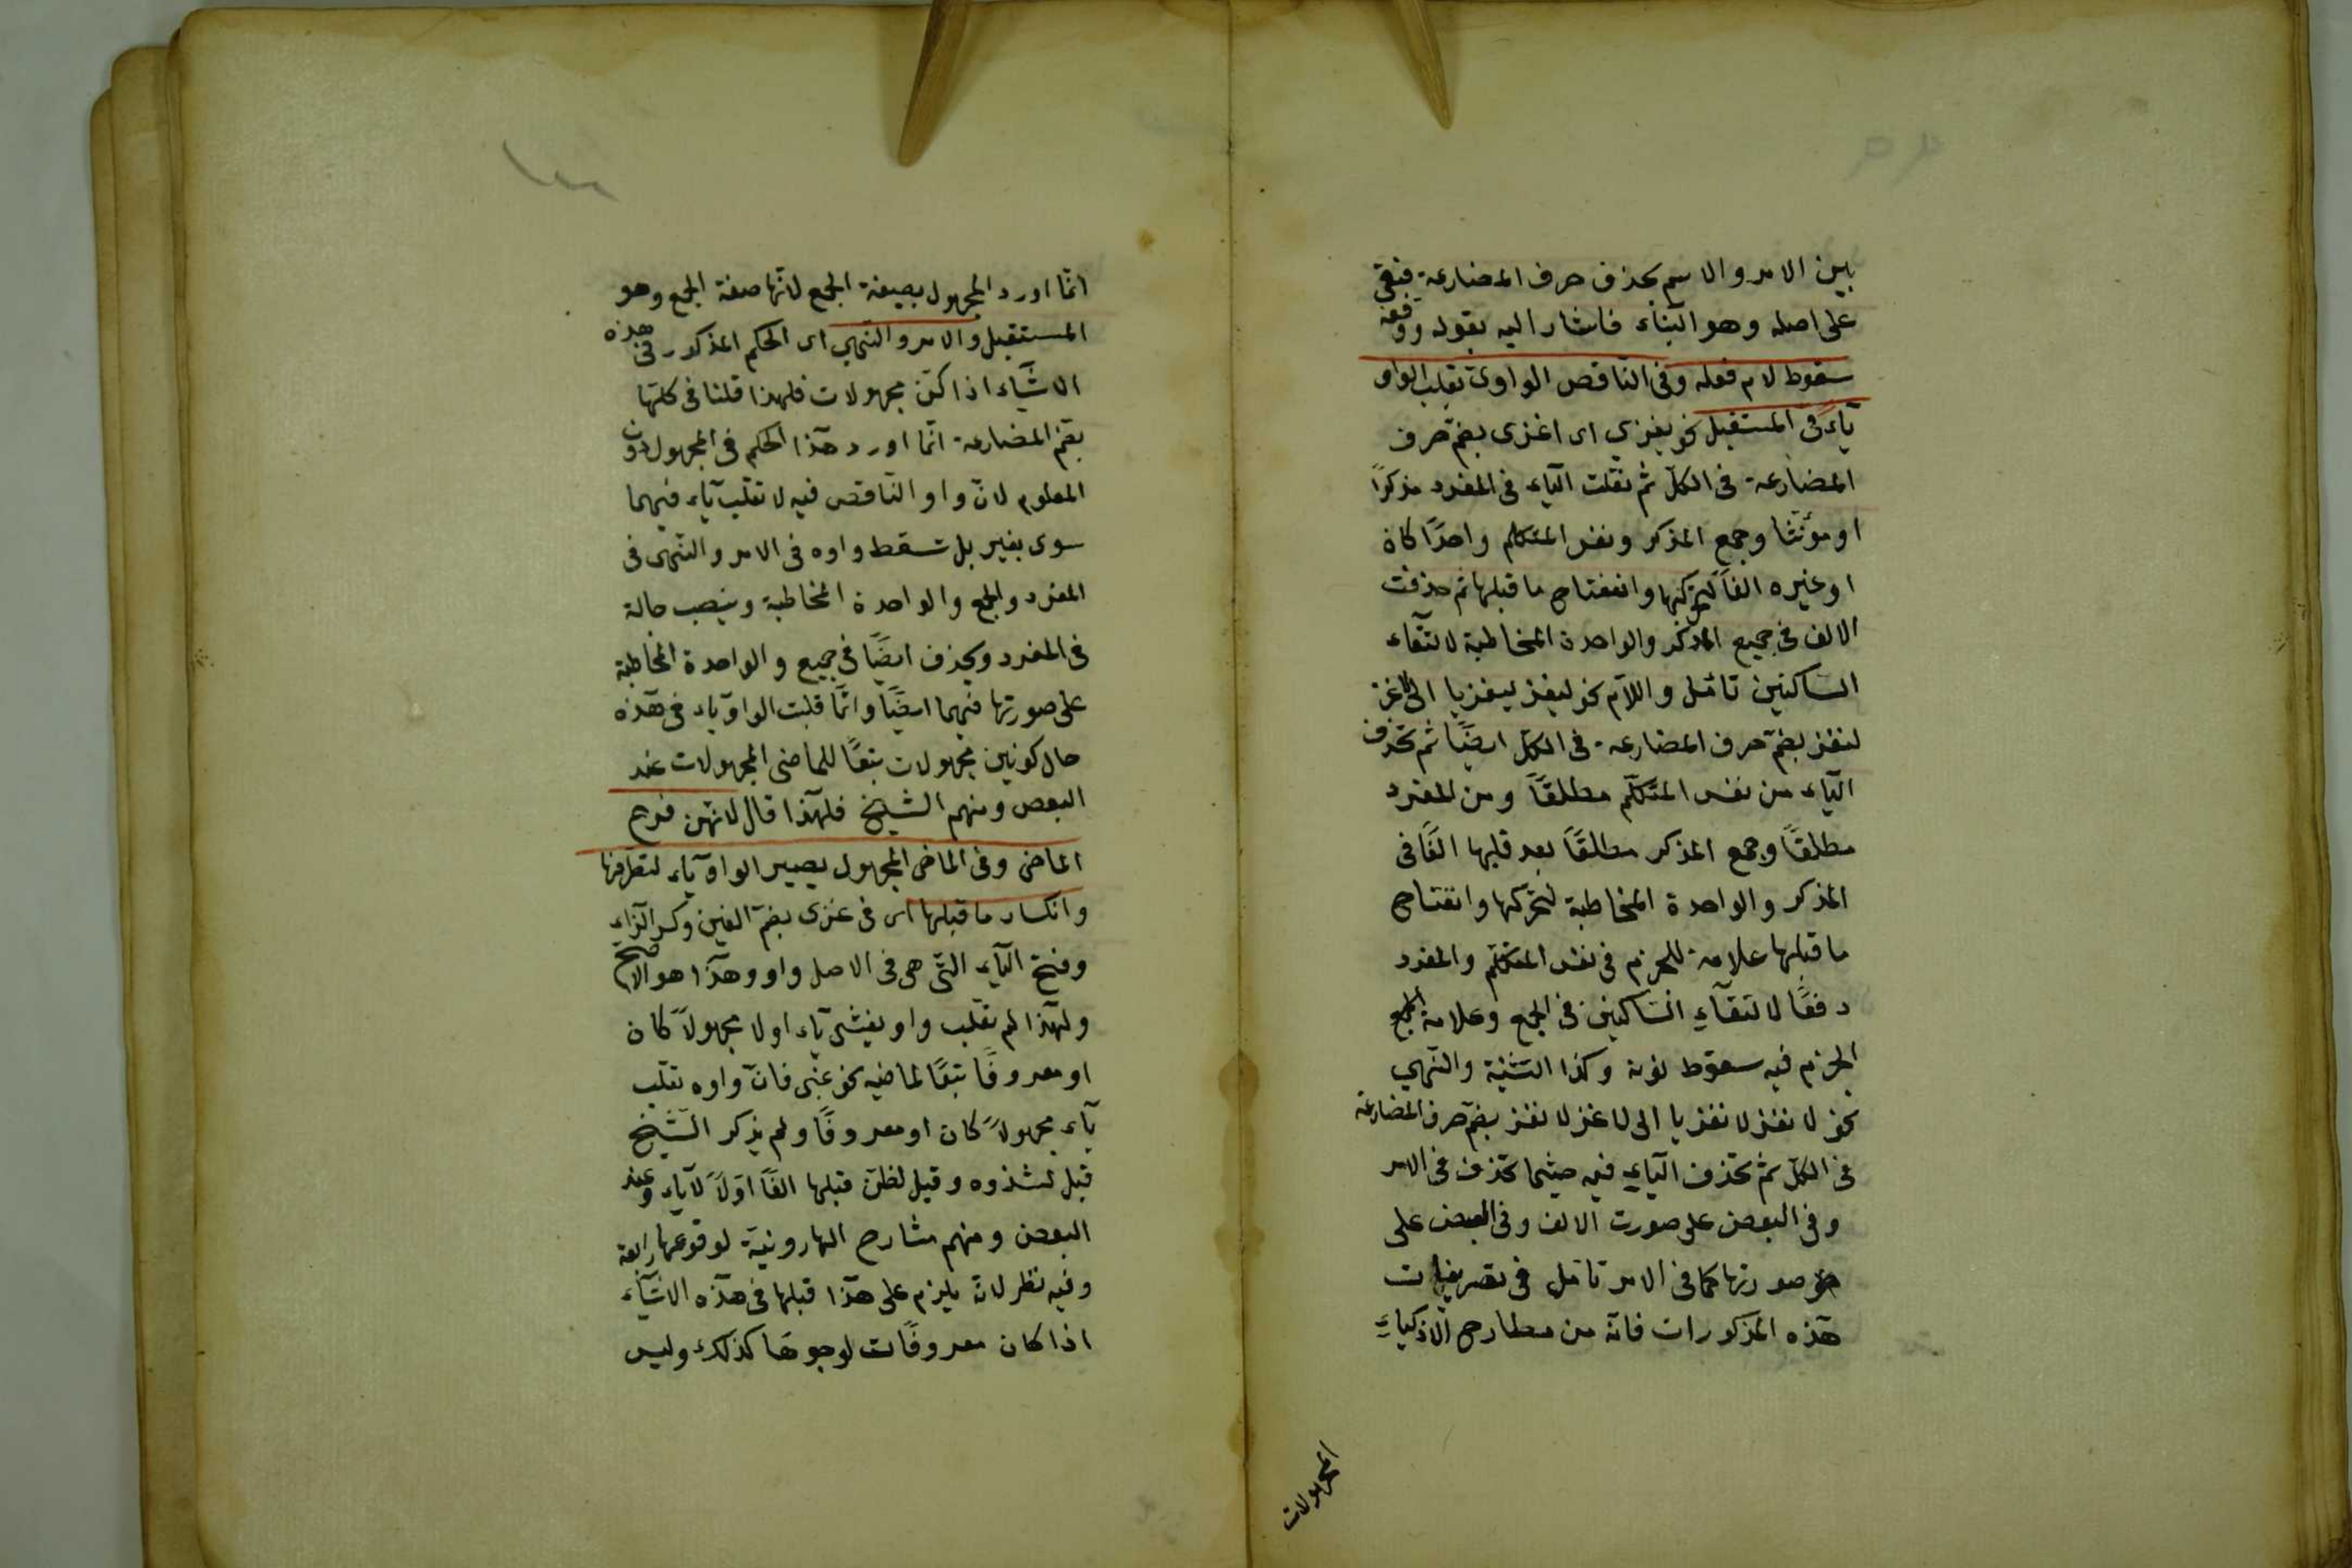 بين الامر والاسم بحذف حرف المضارعة فبقى
على اصله وهو البناء فاشار اليه بقوله ووقفه
سقوط لام فعله وفى الناقص الواوى تقلب الواو
ياء فى المستقبل نحو يغزى اى اغزى بضم حرف
المضارعة فى الكل ثم نقلت الياء فى المفرد مذكرا
او مؤنثا وجمع المذكر ونفس المتكلم واحدا كان
او غيره الفا لتحركها وانفتاح ما قبلها ثم حذفت
الالف فى جميع المذكر والواحدة المخاطبة لالتقاء
الساكنين تأمل واللام نحو ليغز ليغزيا الى لاغز
لنغز بضم حرف المضارعة فى الكل ايضا ثم تحذف
الياء من نفس المتكلم مطلقا ومن المفرد
مطلقا وجمع المذكر مطلقا بعد قلبها الفا فى
المذكر والواحدة المخاطبة لتحركها وانفتاح
ما قبلها علامة للجزم فى نفس المتكلم والمفرد
دفعا لالتقاء الساكنين فى الجمع وعلامة الجمع
الجزم فيه سقوط نونه وكذا التثنية والنهى
نحو لا تغز لا تغزيا الى لاغز لا نغز بضم حرف المضارعة
فى الكل ثم تحذف الياء فيه حيثما تحذف فى الامر
وفى البعض على صورت الالف وفى البعض على
صورتها كما فى الامر تامل فى تصريفات
هذه المذكورات فانه من مطارح الاذكياء
المجهولات
انما اورد المجهول بصيغة الجمع لانها صفة الجمع وهو
المستقبل والامر والنهى اى الحكم المذكور فى هذه
الاشياء اذا كن مجهولات فلهذا قلنا فى كلها
بضم المضارعة انما اورد هذا الحكم فى المجهول دون
المعلوم لان واو الناقص فيه لا تقلب ياء فيهما
سوى يغير بل تسقط واوه فى الامر والنهى فى
المفرد والجمع والواحدة المخاطبة وينصب حالة
فى المفرد ويحذف ايضا فى جميع والواحدة المخاطبة
على صورتها فيهما ايضا وانما قلبت الواو ياء فى هذه
حال كونهن مجهولات تبعا للماضى المجهولات عند
البعض ومنهم الشيخ فلهذا قال لانهن فرع
الماضى وفى الماضى المجهول يصير الواو ياء لتطرفها
وانكسار ما قبلها اى فى غزى بضم الغين وكسر الزاء
وفتح الياء التى هى فى الاصل واو وهذا هو الاصح
ولهذا لم تقلب واو يغشى ياء اولا مجهولا كان
او معروفا تبعا لماضيه نحو غبى فان واوه تقلب
ياء مجهولا كان او معروفا ولم يذكر الشيخ
قبل لشذوه وقيل لظن قبلها الفا اولا لا ياء وعند
البعض ومنهم شارح الهارونية لوقوعها رابعة
وفيه نظر لانه يلزم على هذا قبلها فى هذه الاشياء
اذا كان معروفات لوجوها كذلك وليس